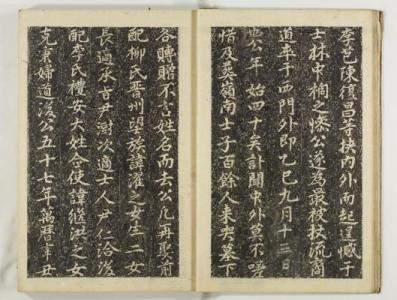 李芑陳復昌等挾內外而起逞憾于
士林申 之 公遂為最被杖流商
道卒于西門外即乙巳九月十三日
也公年始四十矣訃聞中外莫不嗟
惜及葬嶺南士子百餘人來哭墓下
各賻贈不言姓名而去公凡再娶前
配柳氏晋州望族諱濯之女生二女
長適承旨尹澍次適士人尹仁洽後
配李氏禮安大姓合使諱繼洪之女
克、婦道後公五十七年萬曆辛丑